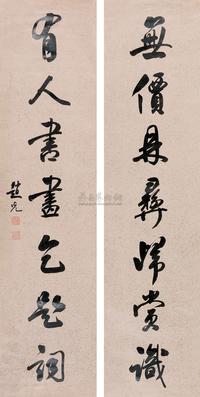 無價鼎彝歸賞識
有人書畫乞題詞